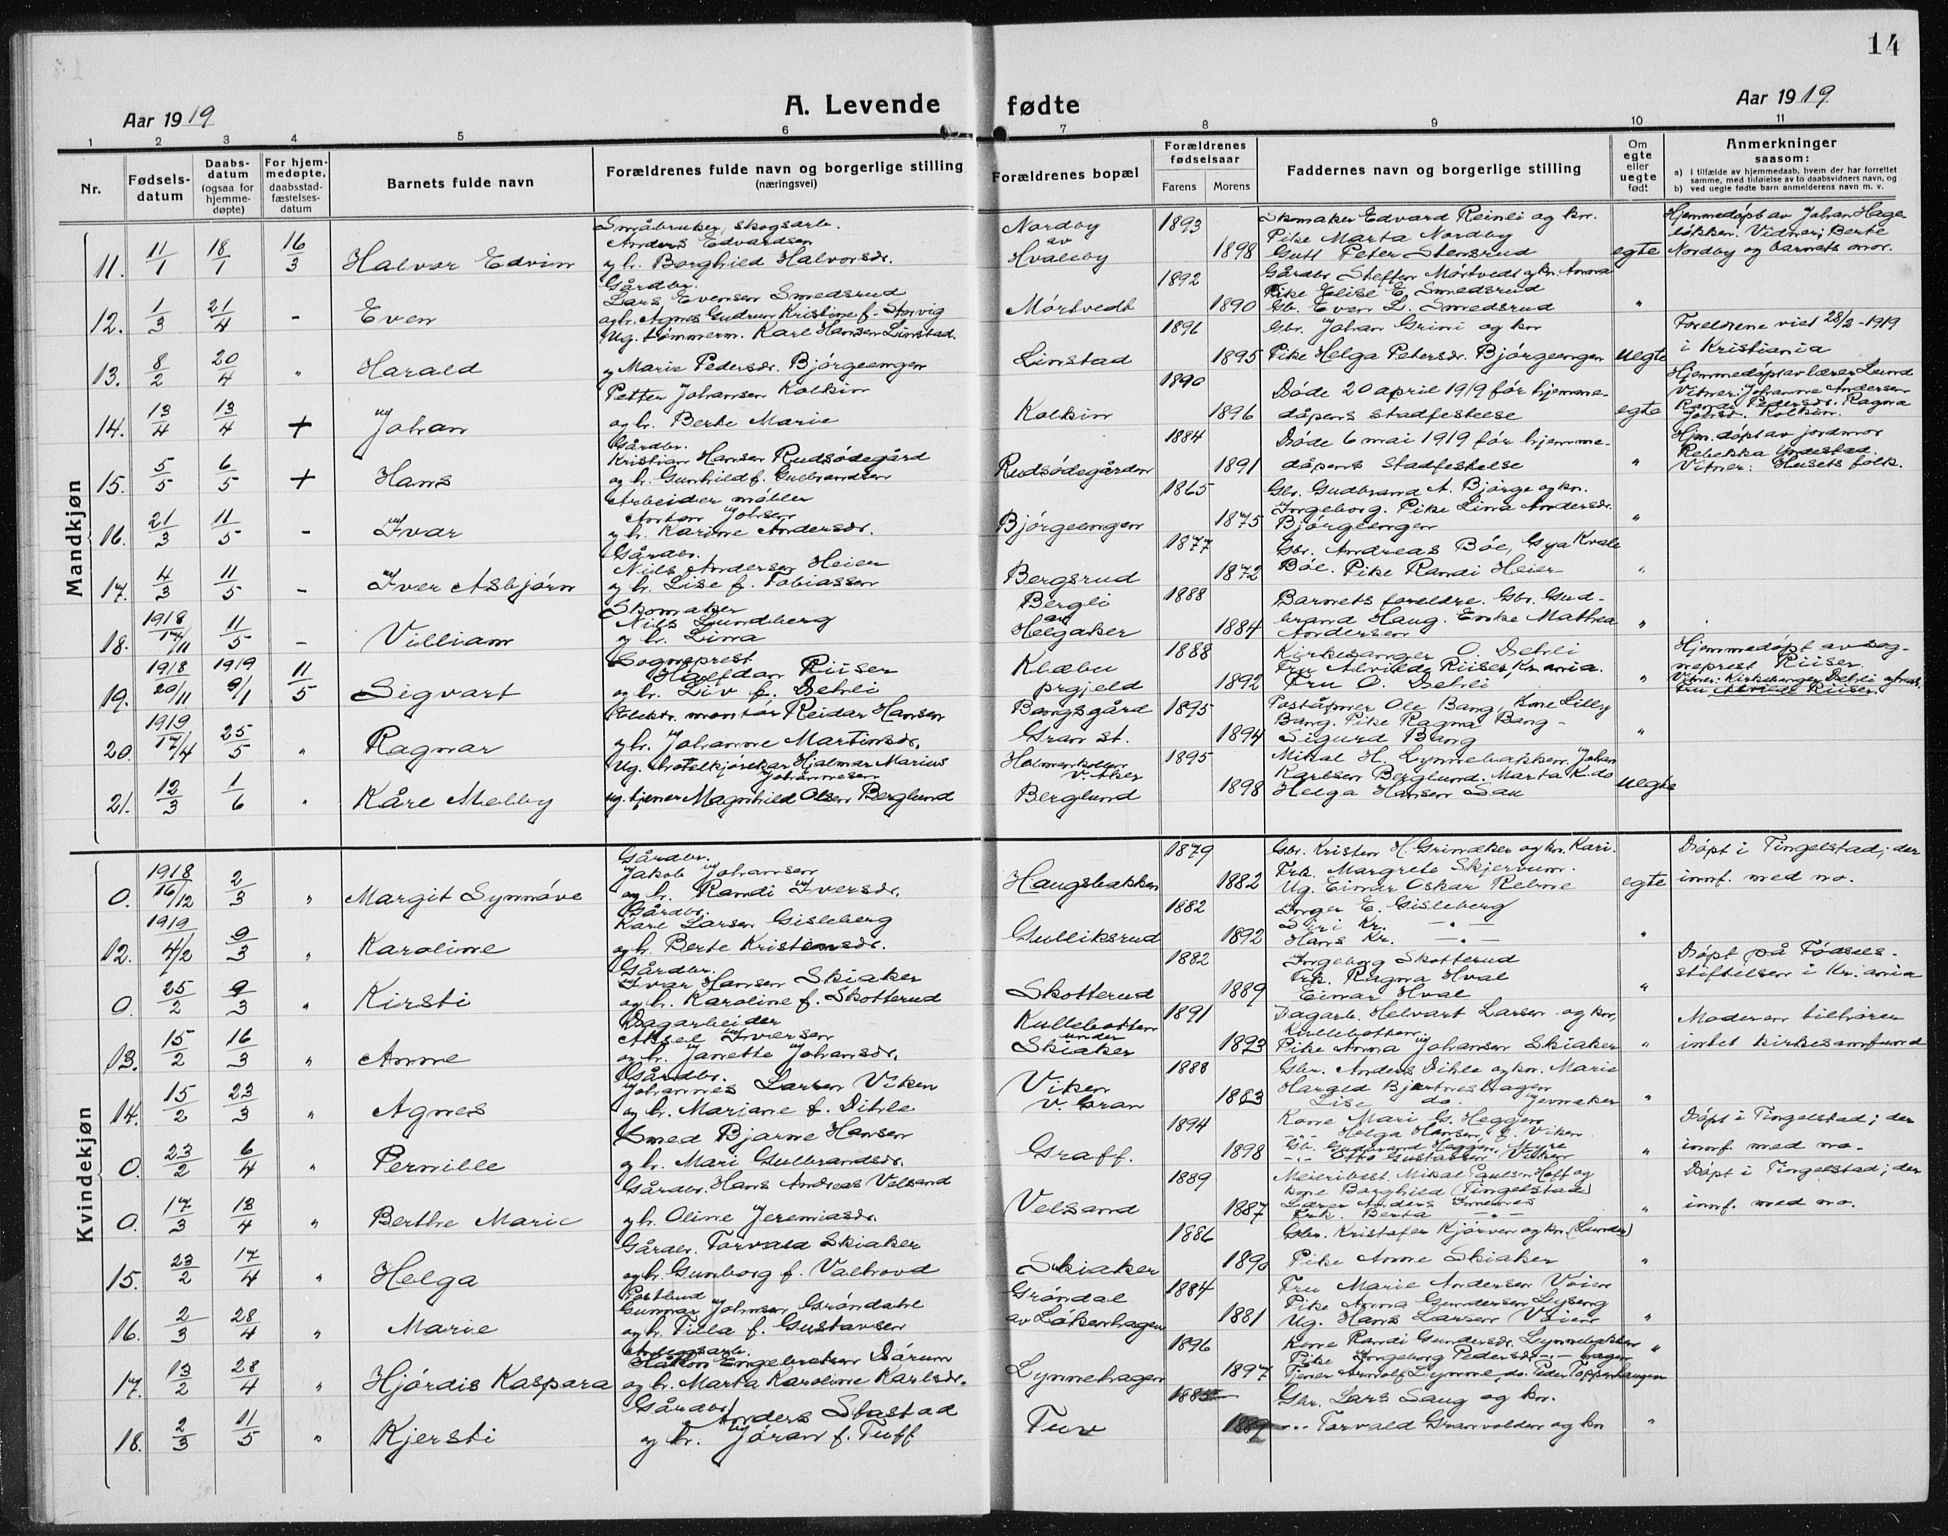 14
Aar 1919
A. Levende fødte
Aar 1919
1 2 3 4 5 6 7 8 9 10 11
Nr.
Fødsels-
datum
Daabs-
datum
(ogsaa for
hjemme-
døpte)
For hjem-
medøpte,
daabsstad-
fæstelses-
datum
Barnets fulde navn
Forældrenes fulde navn og borgerlige stilling
(næringsvei)
Forældrenes bopæl
Forældrenes
fødselsaar
Farens Morens
Faddernes navn og borgerlige stilling
Om
egte
eller
uegte
født
Anmerkninger
saasom:
a) i tilfælde av hjemmedaab, hvem der har forrettet
samme, med tilføielse av to daabsvidners navn, og
b) ved uegte fødte barn anmelderens navn m. v.
Mandkjøn
11. 11/1 18/1 16/3 Halvor Edvin
Småbruker, skogsarb.
Anders Edvardsen
og h. Borghild Halvorsdr.
Nordby
av
Hvaleby
1893 1898
Skomaker Edvard Reinli og kn.
Pike Marta Nordby
Gutt Peter Stensrud
egte
Hjemmedøpt av Johan Hage
løkken. Vidner; Berte
Nordby og barnets mor.
12. 1/3 21/4 - Even
Gårdbr.
Lars Evensen Smedsrud
og h. Agnes Gudrun Kristine f. Storvig
Mørtvedt
1892 1890
Gårdbr. Steffen Mørtvedt og kn. Anna
Pike Elise E. Smedsrud
Gb. Even L. Smedsrud
"
13. 8/2 20/4 " Harald
Ug. tømmerm. Karl Hansen Linstad.
og Marie Pedersdr. Bjørgeengen
Linstad
1896 1895
Gbr. Johan Grini og kn
Pike Helga Petersdr. Bjørgeengen
uegte
Foreldrene viet 28/3-1919
i Kristiania
14. 13/4 13/4 + Johan
Petter Johansen Kolkin
og h. Berte Marie
Kolkin
1890 1896
Døde 20 april 1919 før hjemme-
dåpens stadfestelse
egte
Hjemmedøpt av lærer Lund
Vitner: Johanne Andersen
Pedersdr. Ragna
Kolkin.
15. 5/5 6/5 + Hans
Gårdbr.
Kristian Hansen Rudsødegård
og h. Gunhild f. Gulbrandsen
Rudsødegården
1884 1891
Døde 6 mai 1919 før hjemme-
dåpens stadfestelse
"
Hjm. døpt av jordmor
Rebekka
Vitner: Husets folk.
16. 21/3 11/5 - Ivar
Arbeider møbler
Anton Johsen
og h. Karine Andersdr.
Bjørgeengen
1865 1875
Gbr. Gudbrand A. Bjørge og kn.
Ingeborg. Pike Lina Andersdr.
Bjørgeengen
"
17. 4/3 11/5 - Iver Asbjørn
Gårdbr.
Nils Andersen Heier
og h. Lise f. Tobiassen
Bergsrud
1877 1872
Gbr. Andreas Bøe, Gya Kvale
Bøe. Pike Randi Heier
"
18. 1918 17/11 11/5 - Villiam
Skomaker
Nils Lundberg
og h. Lina
Bergli
av
Helgaker
1888 1884
Barnets foreldre. Gbr. Gud-
brand Haug. Enke Mathea
Andersen
"
19. 1918 20/11 1919 9/1 11/5 Sigvart
Sogneprest
Halfdan Riiser
og h. Liv f. Dehli
Klæbu
prgjeld
1888 1892
Kirkesanger O. Dehli
Fru Alvilde Riiser, Kr.ania.
Fru O. Dehli
"
Hjemmedøpt av sog-
neprest Riiser.
Vitner: Kirkesanger Dehli og frue.
Fru Alvilde Riiser.
20. 1919 17/4 25/5 " Ragnar
Elektr. montør Reidar Hansen
og h. Johanne Martinsdr.
Bangsgård
Gran st.
1895 1894
Poståpner Ole Bang, Kone Lilly
Bang. Pike Ragna Bang -
Sigurd Bang
"
21. 12/3 1/6 " Kåre Melby
Ug. hotelkjører Hjalmar Marius
Johannesen
ug. tjener Magnhild Olsen Berglund
Holmenkollen
v. Aker
Berglund
1895 1898
Mikal H. Lynnebakken. Johan
Karlsen Berglund. Marta K. do
Helga Hansen Sau
uegte
Kvindekjøn
0. 1918 16/12 2/3 " Margit Synnøve
Gårdbr.
Jakob Johansen
og h. Randi Iversdr.
Haugsbakken
1879 1882
Gbr. Kristen H. Grinaker og kn. Kari.
Frk. Margrete Skjervum.
Ug. Einar Oskar Rekne
egte
Døpt i Tingelstad; der
innf. med no.
12. 1919 4/2 9/3 " Karoline
Gårdbr.
Kare Larsen Gisleberg
og h. Berte Kristiansdr.
Gulliksrud
1882 1892
Inger E. Gisleberg
Siri Kr. - " -
Hans Kr. - " -
"
0. 25/2 9/3 " Kirsti
Gårdbr.
Ivar Hansen Skiaker
og h. Karoline f. Skotterud
Skotterud
1882 1889
Ingeborg Skotterud
Frk. Ragna Hval
Einar Hval
"
Døpt på Fødsels-
stiftelsen i Kr.ania
13. 15/2 16/3 " Anne
Dagarbeider
Aksel Iversen
og h. Janette Johansdr.
Kullebotten
under
Skiaker
1891 1893
Dagarb. Helvart Larsen og kn,
Kullebotten.
Pike Anna Johansen Skiaker
"
Moderen tilhører
intet kirkesamfund
14. 15/2 23/3 " Agnes
Gårdbr.
Johannes Larsen Viken
og h. Mariane f. Dihle
Viken
v. Gran
1888 1883
Gbr. Anders Dihle og kn. Marie
Harald Bjertneshagen
Lise do. Jevnaker
"
0. 23/2 6/4 " Pernille
Smed Bjarne Hansen
og h. Mari Gulbrandsdr.
Graff.
1894 1898
Kone Mari G. Heggen
- " - Helga Hansen, f. Viken
Gb. Gudbrand Heggen,
- " - Otto Gustavsen Viken
"
Døpt i Tingelstad; der
innf. med no.
0. 17/3 13/4 " Berthe Marie
Gårdbr. Hans Andreas Velsand
og h. Oline Jeremiasdr.
Velsand
1889 1887
Meieribest. Mikal Paulsen Hoff og
kone Borghild (Tingelstad)
Lærer Anders
Frk. Berta - " -
"
Døpt i Tingelstad; der
innf. med no.
15. 23/2 17/4 " Helga
Gårdbr. Torvald Skiaker
og h. Gunborg f. Valhovd
Skiaker
1886 1890
Gbr. Kristofer Kjørven og kn (Lunder)
Pike Anne Skiaker
"
16. 2/3 28/4 " Marie
Postbud
Gunnar Johnsen Grøndahl
og h. Tilla f. Gustavsen
Grøndal
av Løkenhagen
1884 1881
Fru Marie Andersen Vøien
Pike Anna Gundersen Lyseng
Ug. Hans Larsen Vøien
"
17. 13/2 28/4 " Hjørdis Kaspara
Anlegsarb.
Håkon Engebretsen Dårum
og h. Marta Karoline Karlsdr.
Lynnehagen
1896 1897
Kone Randi Gundersdr. Lynnebakken
Pike Ingeborg Pedersdr. - " - hagen
Tjener Arnolf Lynne do. Peder Toppenhaugen
"
18. 2/3 11/5 " Kjersti
Gårdbr.
Anders Stastad
og h. Jøran f. Tuff
Tuv
1885 1889
Gbr. Lars Saug og kn.
- " - Torvald Granvolden og kn
"